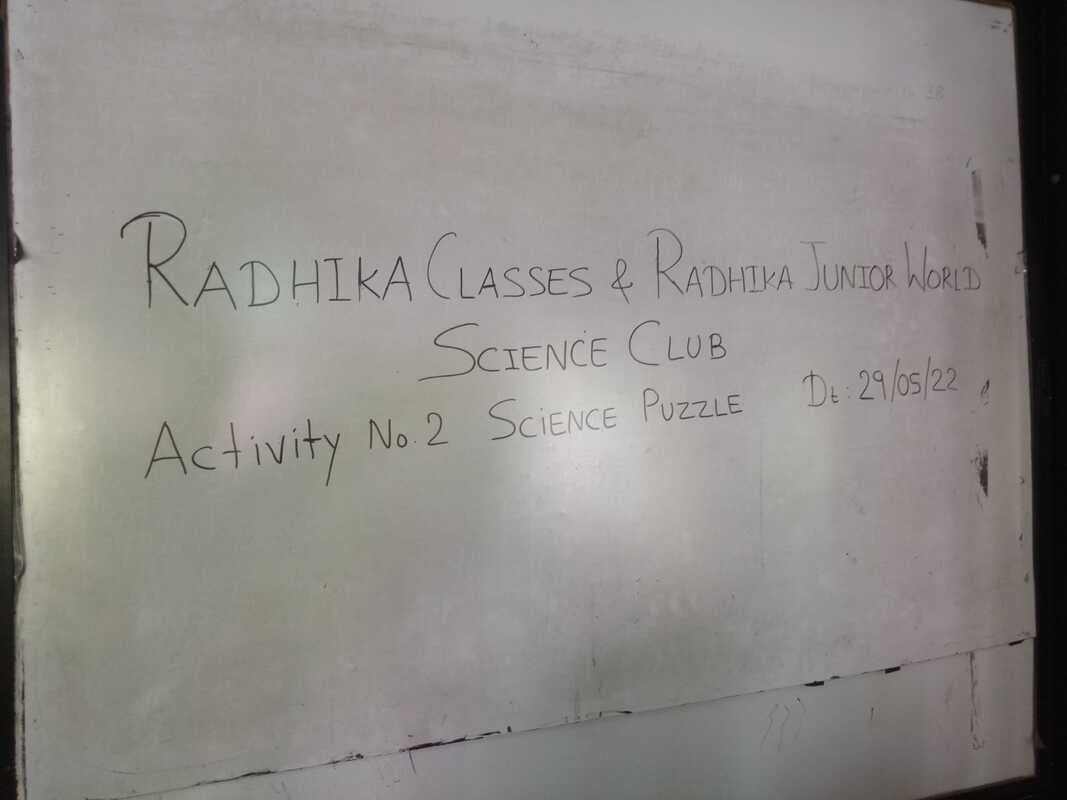 RADHIKA CLASSES & RADHIKA JUNIOR WORLD
SCIENCE CLUB
Activity No. 2 SCiENCE PUZZLE Dt: 29/05/22